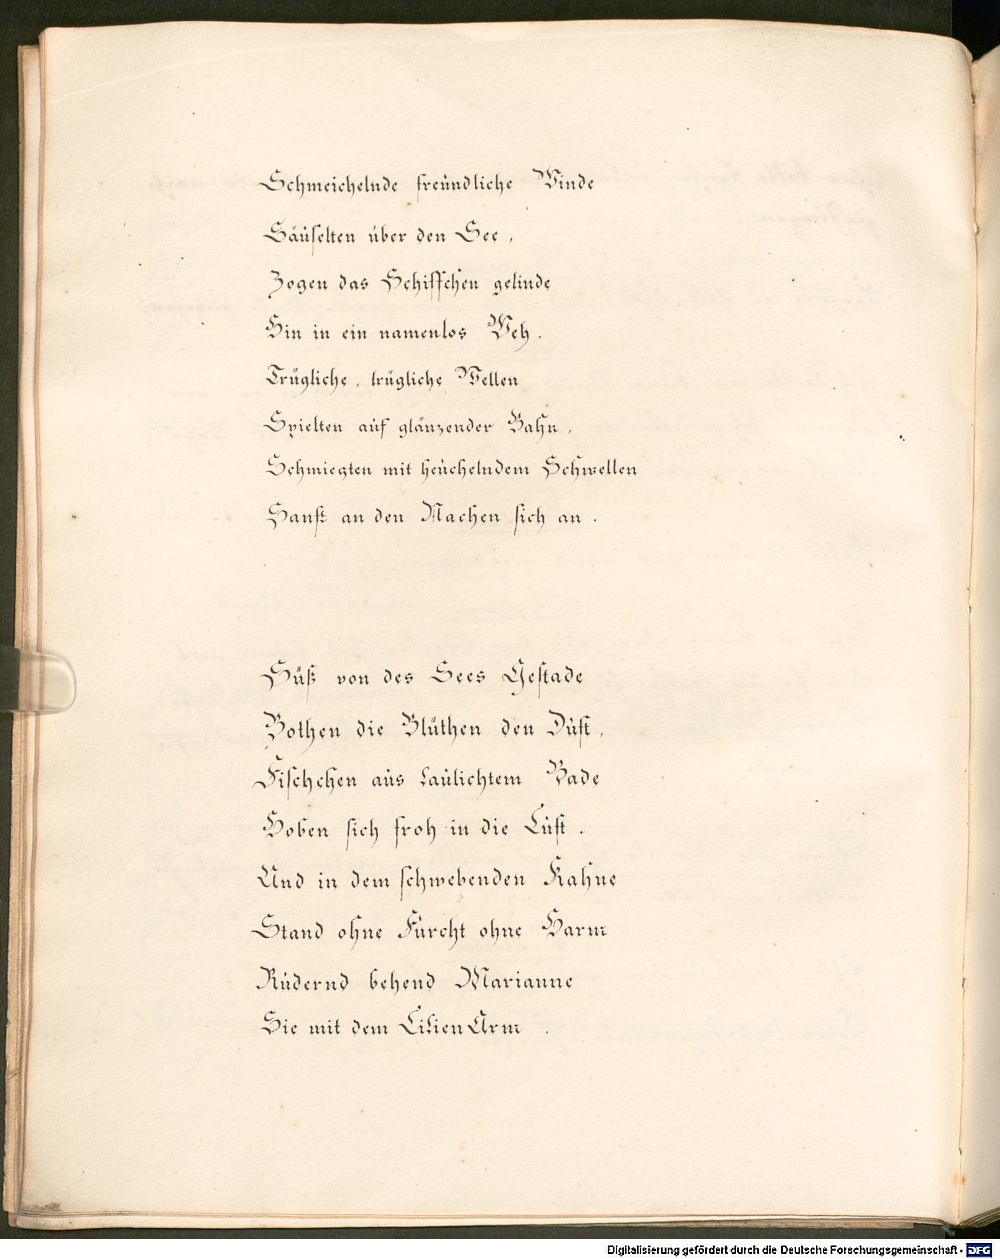 Schmeichelnde freundliche Winde
Säuselten über den See,
Zogen das Schiffchen gelinde
Hin in ein namenlos Weh.
Trügliche, trügliche Wellen
Spielten auf glänzender Bahn,
Schmiegten mit heuchelndem Schwellen
Sanft an den Nachen sich an.
Süß von des Sees Gestade
Bothen die Blüthen den Duft,
Fischchen aus laulichtem Bade
Hoben sich froh in die Luft.
Und in dem schwebenden Kahne
Stand ohne Furcht ohne Harm
Rudernd behend Marianne
Sie mit dem Lilien Arm.
Digitalisierung gefördert durch die Deutsche Forschungsgemeinschaft - DFG